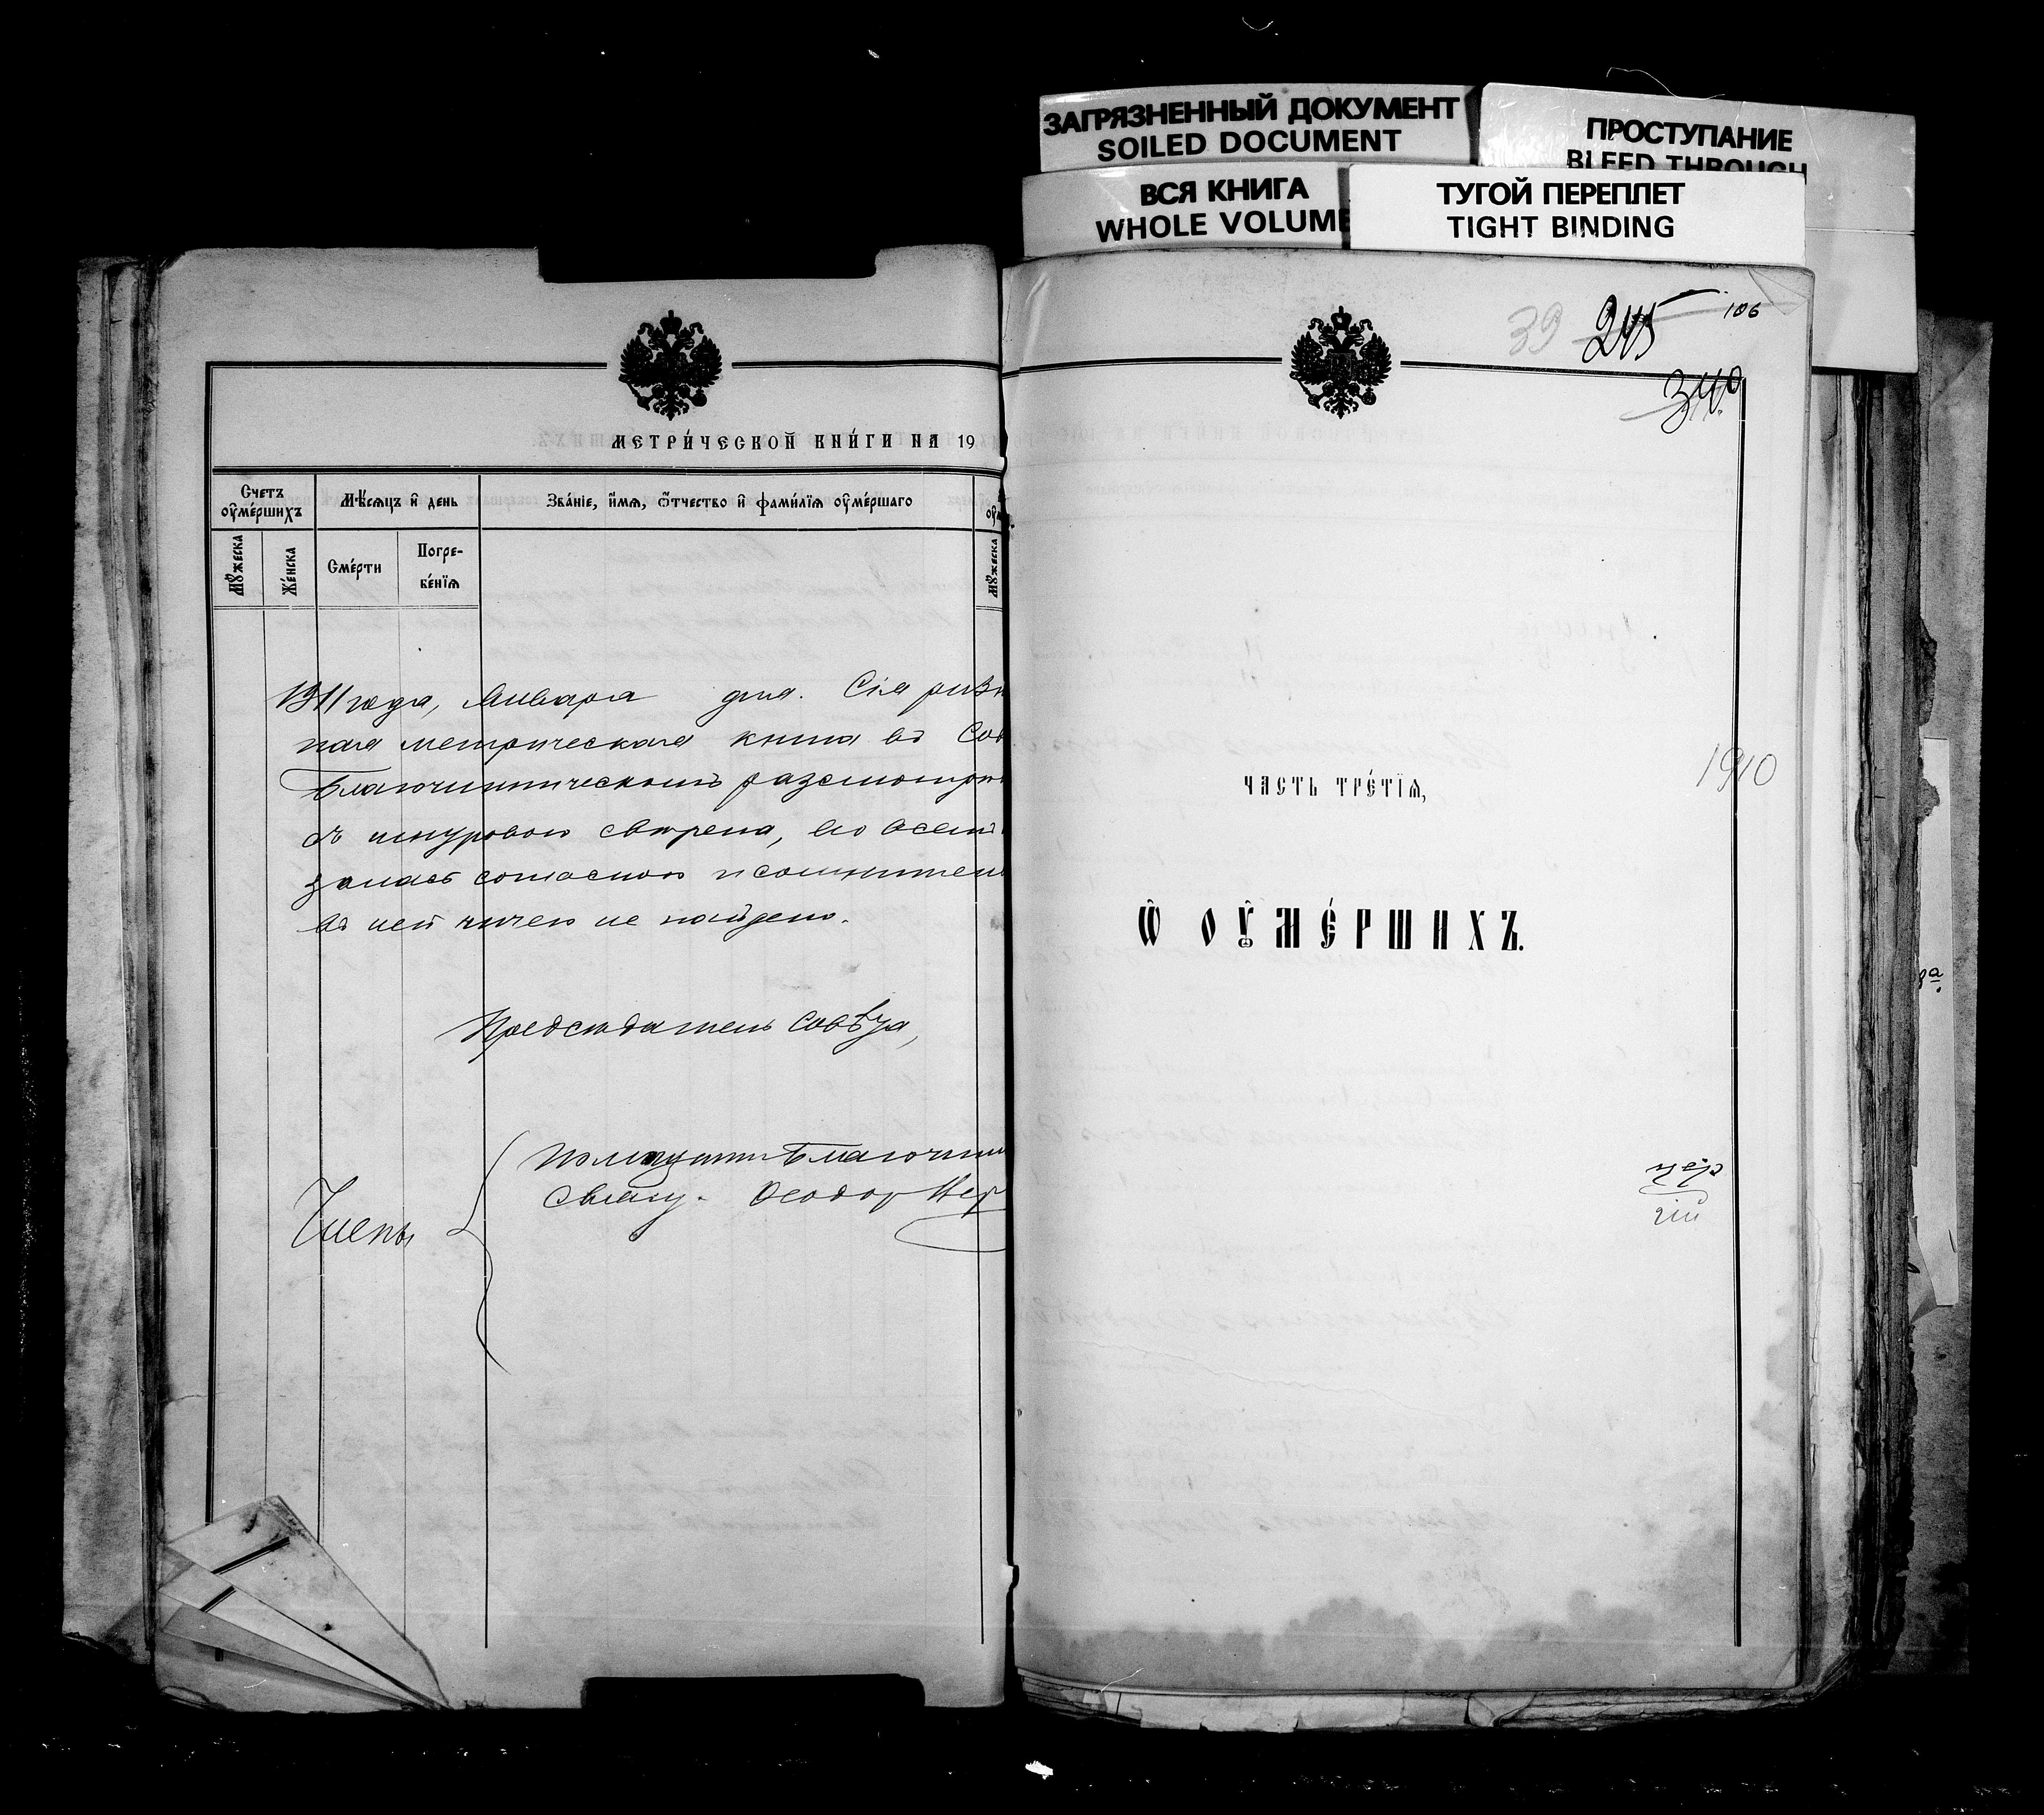 ЗАГРЯЗНЕННЫЙ ДОКУМЕНТ
SOILED DOCUMENT
ПРОСТУПАНИЕ
BLEED THROUGH
ВСЯ КНИГА
WHOLE VOLUME
ТУГОЙ ПЕРЕПЛЕТ
TIGHT BINDING
МЕТРИ́ЧЕСКОЙ КНИ́ГИ НА 19
Счетъ оу҆ме́ршихъ
Мѣ́сяцъ и҆ день
Зва́нїе, и҆́мѧ, ѻ҆́тчество и҆ фами́лїѧ оу҆ме́ршаго
Мꙋ́жеска
Же́нска
Сме́рти
Погре-
бе́нїѧ
Мꙋ́жеска
1911 года, Января дня. Сія
ная метрическая книга въ Сов
Благочинническомъ разсмотрн
съ шнуровою сверена, во всемъ
залась согласною и сомнителн
въ ней ничего не найдено.
Предсѣдатель Совѣта,
Помощникъ Благочин
Члены
Свящ. Ѳеодор
39 245 106
340
1910
ЧАСТЬ ТРЕ́ТЇѦ,
Ѽ ОУ҆МЕ́РШИХЪ.